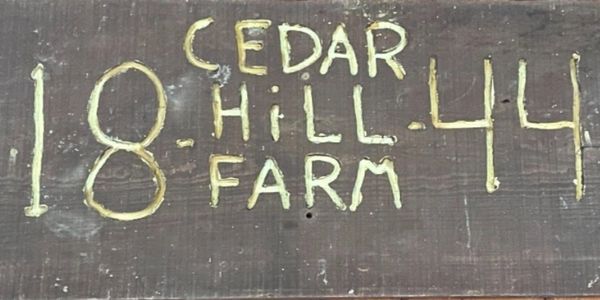 CEDAR
18-HiLL-44
FARM